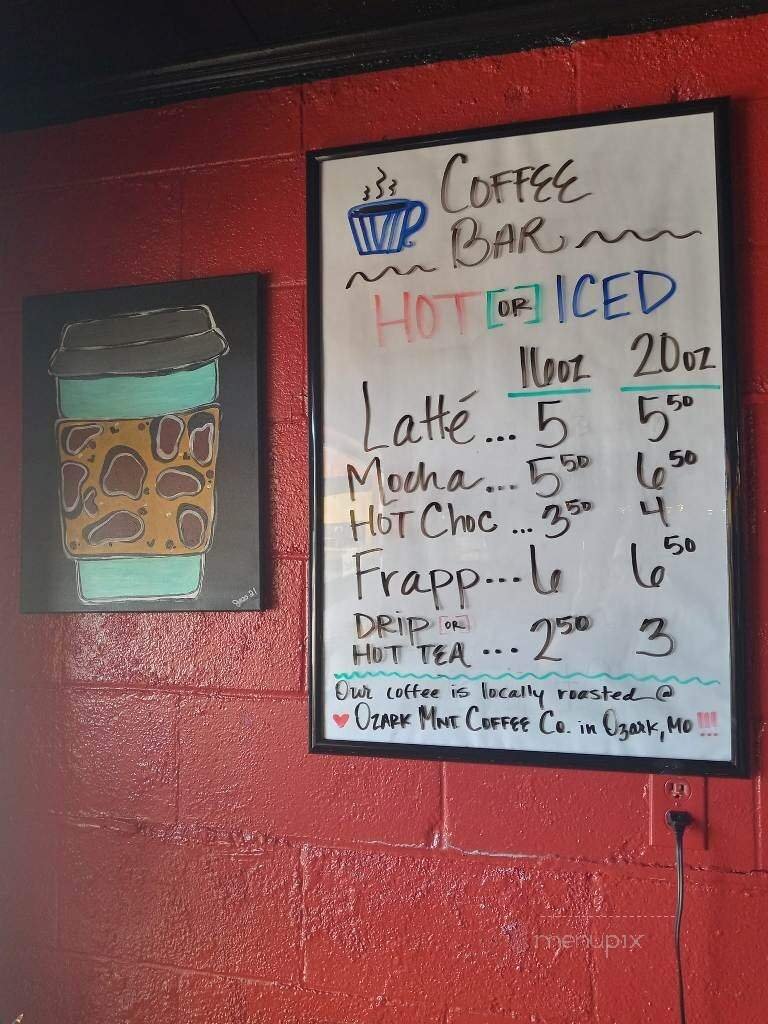 COFFEE
BAR
HOT [OR] ICED
16oz 20oz
Latté... 5 5.50
Mocha... 5.50 6.50
HOT Choc ... 3.50 4
Frapp... 6 6.50
DRIP OR
HOT TEA ... 2.50 3
Our coffee is locally roasted @
♥ OZARK MNT COFFEE CO. in Ozark, MO !!!
menupix